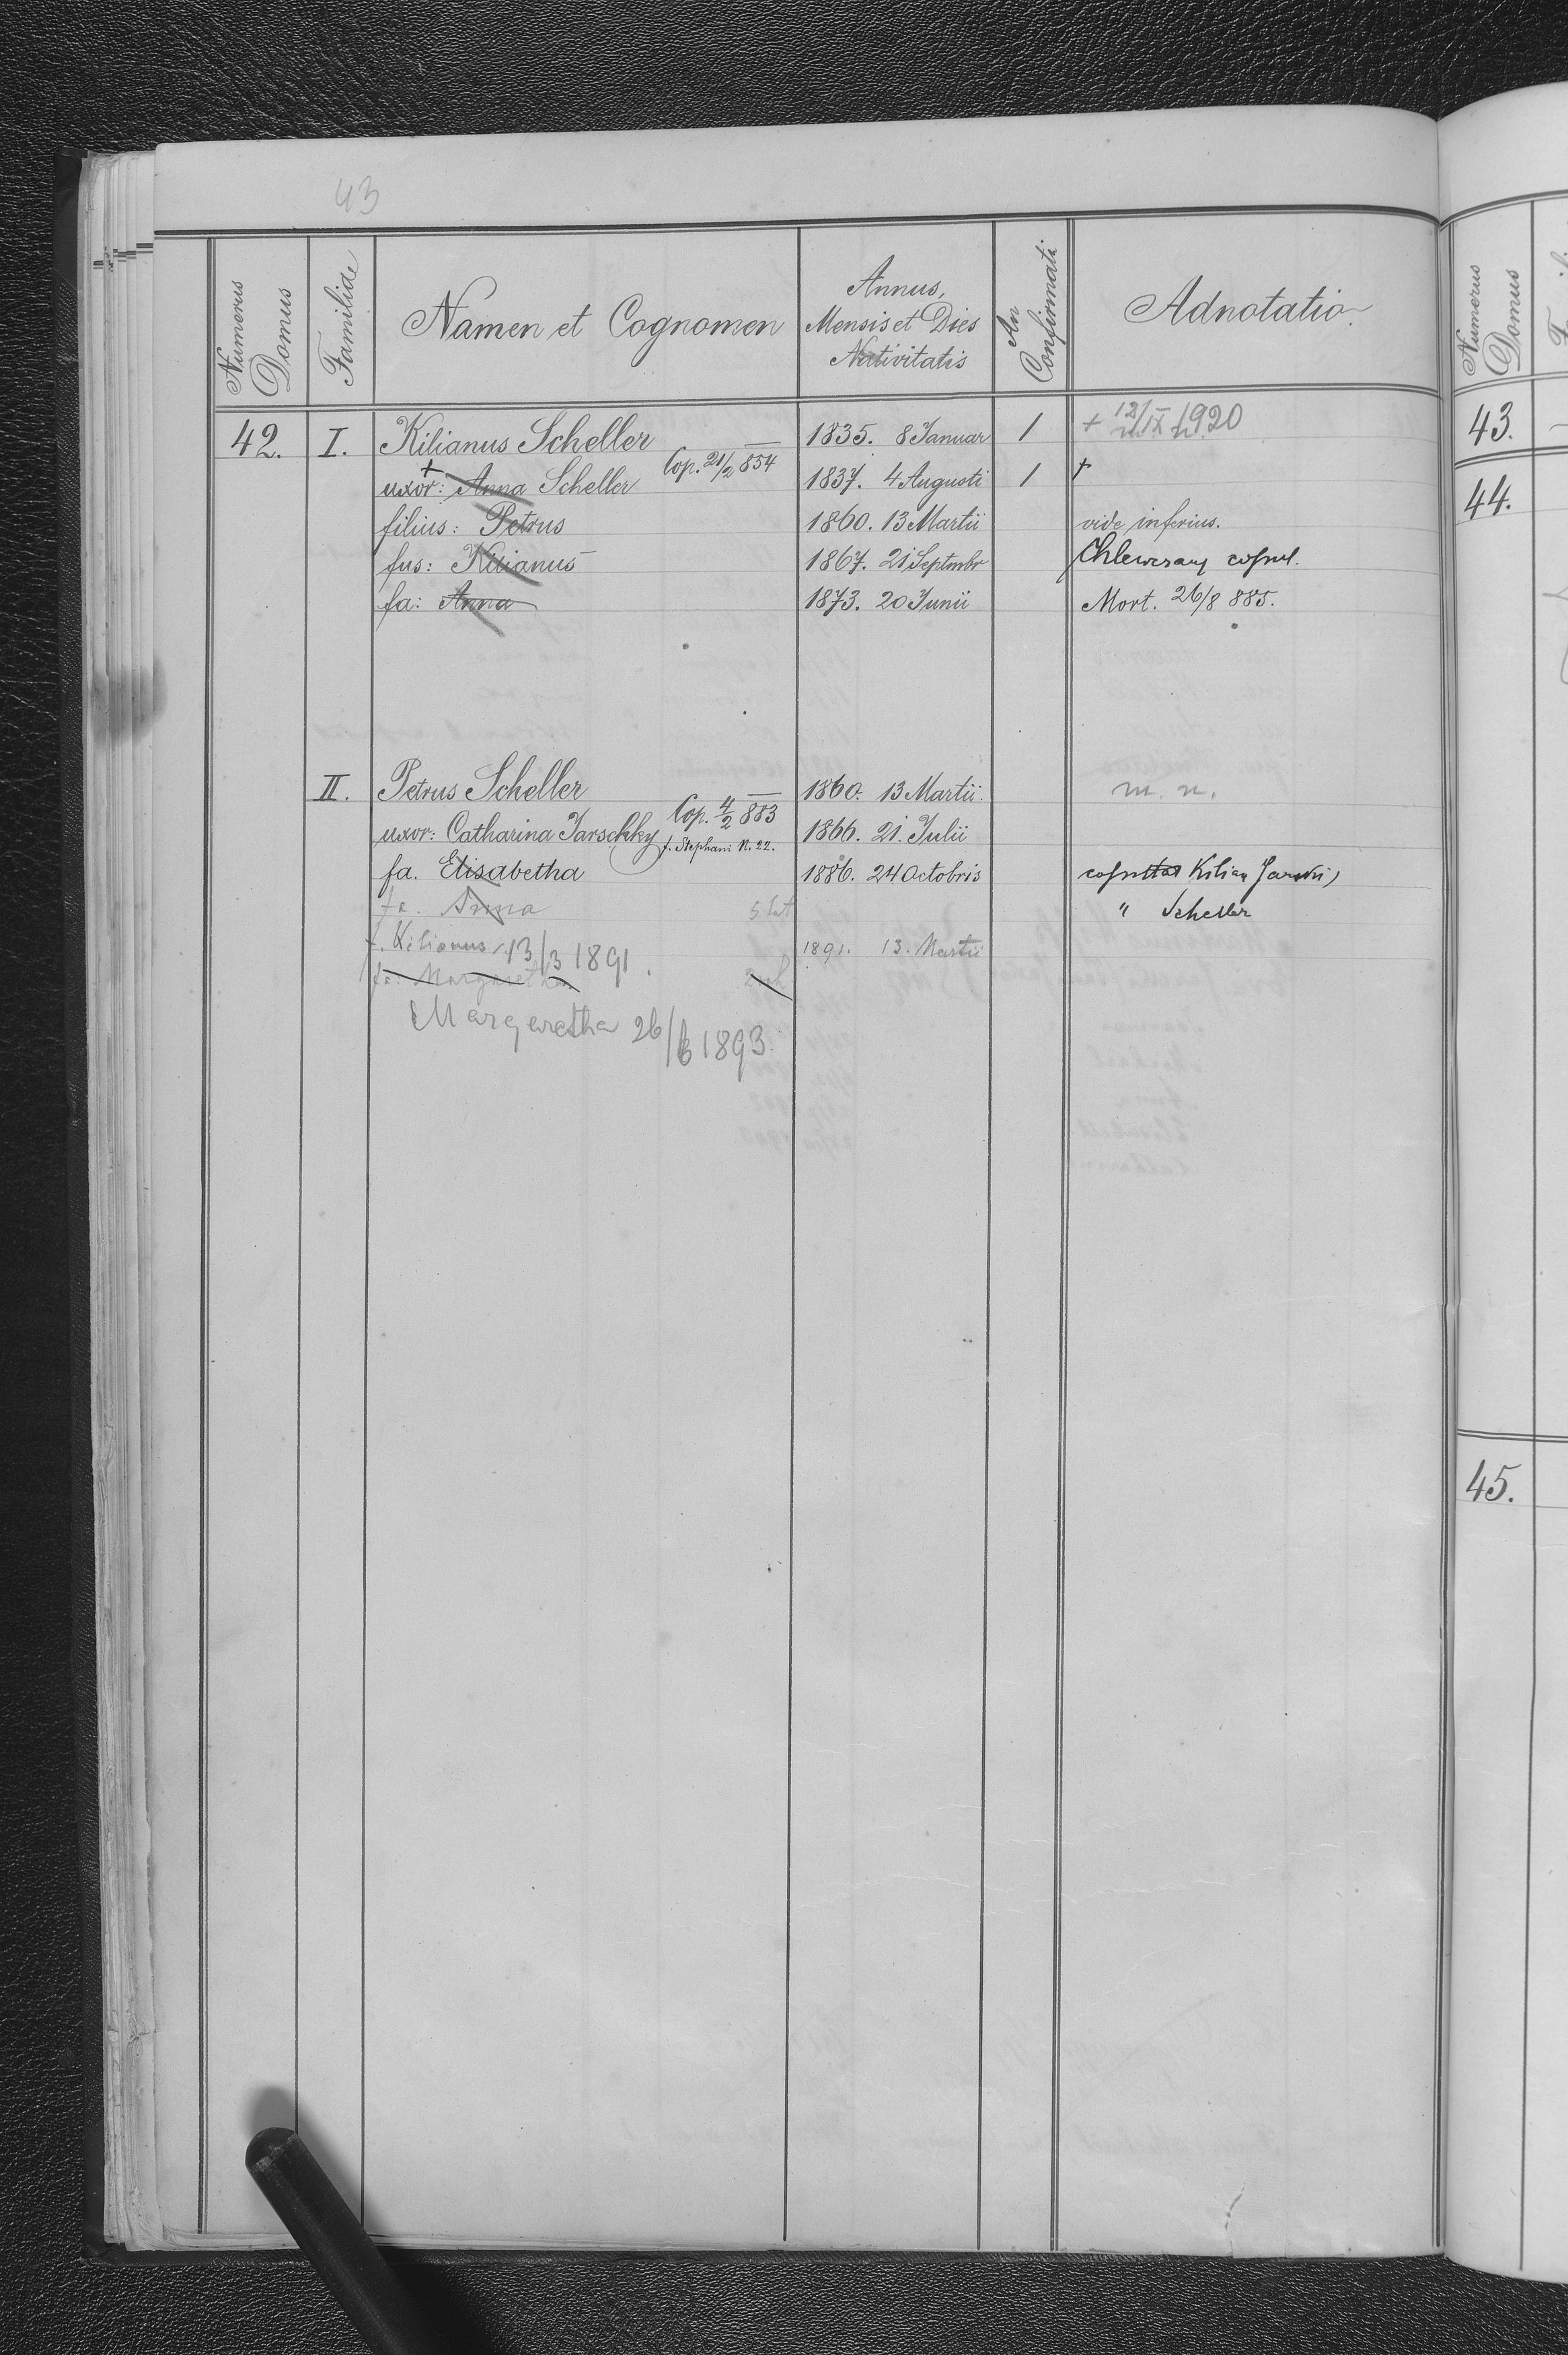 43
Numerus Domus Familiae Namen et Cognomen Annus, Mensis et Dies Nativitatis An Confirmati Adnotatio.
42. I. Kilianus Scheller 1835. 8 Januar 1 + 12/IX 1920
Cop. 21/2 854
+ uxor: Anna Scheller 1837. 4 Augusti 1 +
filius: Petrus 1860. 13 Martii vide inferius.
fus: Kilianus 1867. 21 Septmbr
fa: Anna 1873. 20 Junii Mort. 26/8 885.
II. Petrus Scheller 1860. 13 Martii. m. n.
Cop. 4/2 883
uxor: Catharina Jarschky f. Stephani N. 22. 1866. 21. Julii
fa. Elisabetha 1886. 24 Octobris Kilian
fa. Anna " Scheller
f. Kilianus 13/3 1891. 1891. 13. Martii
fa: Margaretha
Margaretha 26/6 1893.
Numerus Domus
43.
44.
45.